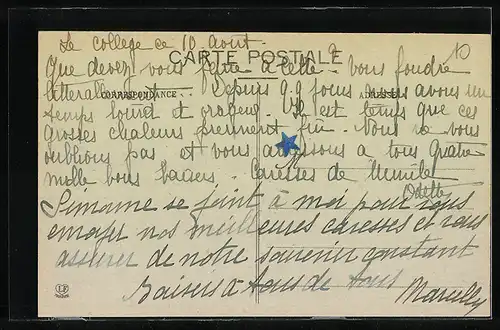 Le college ce 10 Aout.
10
CARTE POSTALE
Que devez vous faire à Vous foudre
CORRESPONDANCE
ADRESSE
litteralement Depuis q.q jours nous avons un
temps lourd et orageux Il est temps que ces
grosses chaleurs prennent fin. Nous ne vous
oublions pas et vous envoyons a tous quatre
mille bons baisers. Caresses de
Odette
Simonne se joint à moi pour vous
envoyer nos meilleures caresses et vous
assurer de notre souvenir constant
Baisers à tous de tous
Marcelle